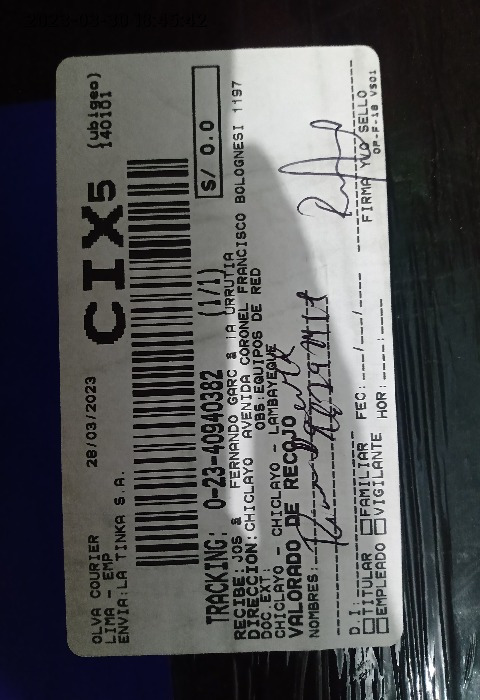 OLVA COURIER
LIMA - EMP
28/03/2023
ENVIA: LA TINKA S.A.
CIX5
(ubigeo)
140101
S/ 0.0
TRACKING: 0-23-40940382 (1/1)
RECIBE: JOS & FERNANDO GARC & IA URRUTIA
DIRECCIÓN: CHICLAYO AVENIDA CORONEL FRANCISCO BOLOGNESI 1197
DOC.EXT: OBS: EQUIPOS DE RED
CHICLAYO - CHICLAYO - LAMBAYEQUE
VALORADO DE RECOJO
NOMBRES:
D.I:
FEC: ---/---/----
FIRMA Y/O SELLO
TITULAR FAMILIAR
EMPLEADO VIGILANTE HOR: ----:----
OP-F-18 VS01